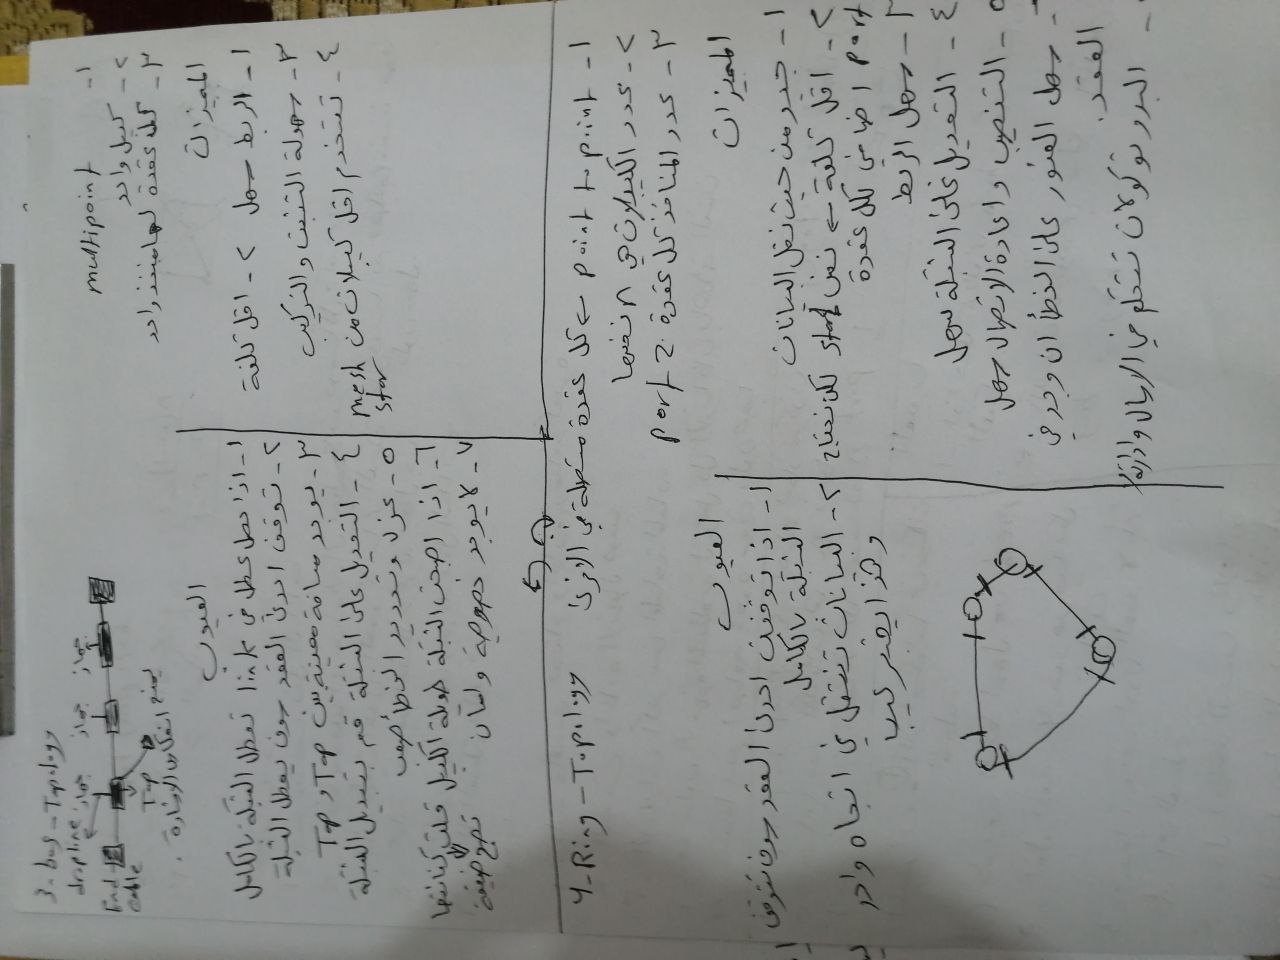 3- bus - Topology
drop line
جهاز
جهاز
جهاز
End
cable
Tap
يمنع انعكاس الإشارة .
١- multipoint
٢- كيبل واحد
٣- كل عقدة لها منفذ واحد
المميزات
١- الربط سهل ٢- اقل تكلفة
٣- سهولة التثبيت والتركيب
٤- تستخدم اقل كيبلات من mesh
star
العيوب
١- اذا حصل عطل في link تعطل الشبكة بالكامل
٢- توقف احدى العقد سوف يعطل الشبكة
٣- يوجد مسافة معينة بين Tap و Tap
٤- التعديل على الشبكة قم بتبديل الشبكة
٥- عزل وتحديد الخطأ صعب
٦- اذا اصبحت الشبكة طويلة الكيبل قلت كفائتها
تصبح ضعيفة
٧- لا يوجد خصوصية وامان
4- Ring - Topology
١- point to point كل عقدة متصلة في الاخرى
٢- عدد الكيبلات هي n نفسها
٣- عدد المنافذ كل عقدة 2 port
المميزات
١- جيد من حيث نقل البيانات
٢- اقل تكلفة نفس star لكن نحتاج
port اضافي لكل عقدة
٣- سهل الربط
٤- التعديل على الشبكة سهل
٥- التنصيب واعادة الاتصال سهل
- سهل العثور على الخطأ ان وجد في
العقد .
- البروتوكولات تتحكم في الارسال وادارة
العيوب
١- اذا توقفت احدى العقد سوف تتوقف
الشبكة بالكامل
٢- البيانات تنتقل في اتجاه واحد
وهذا يعتبر عيب